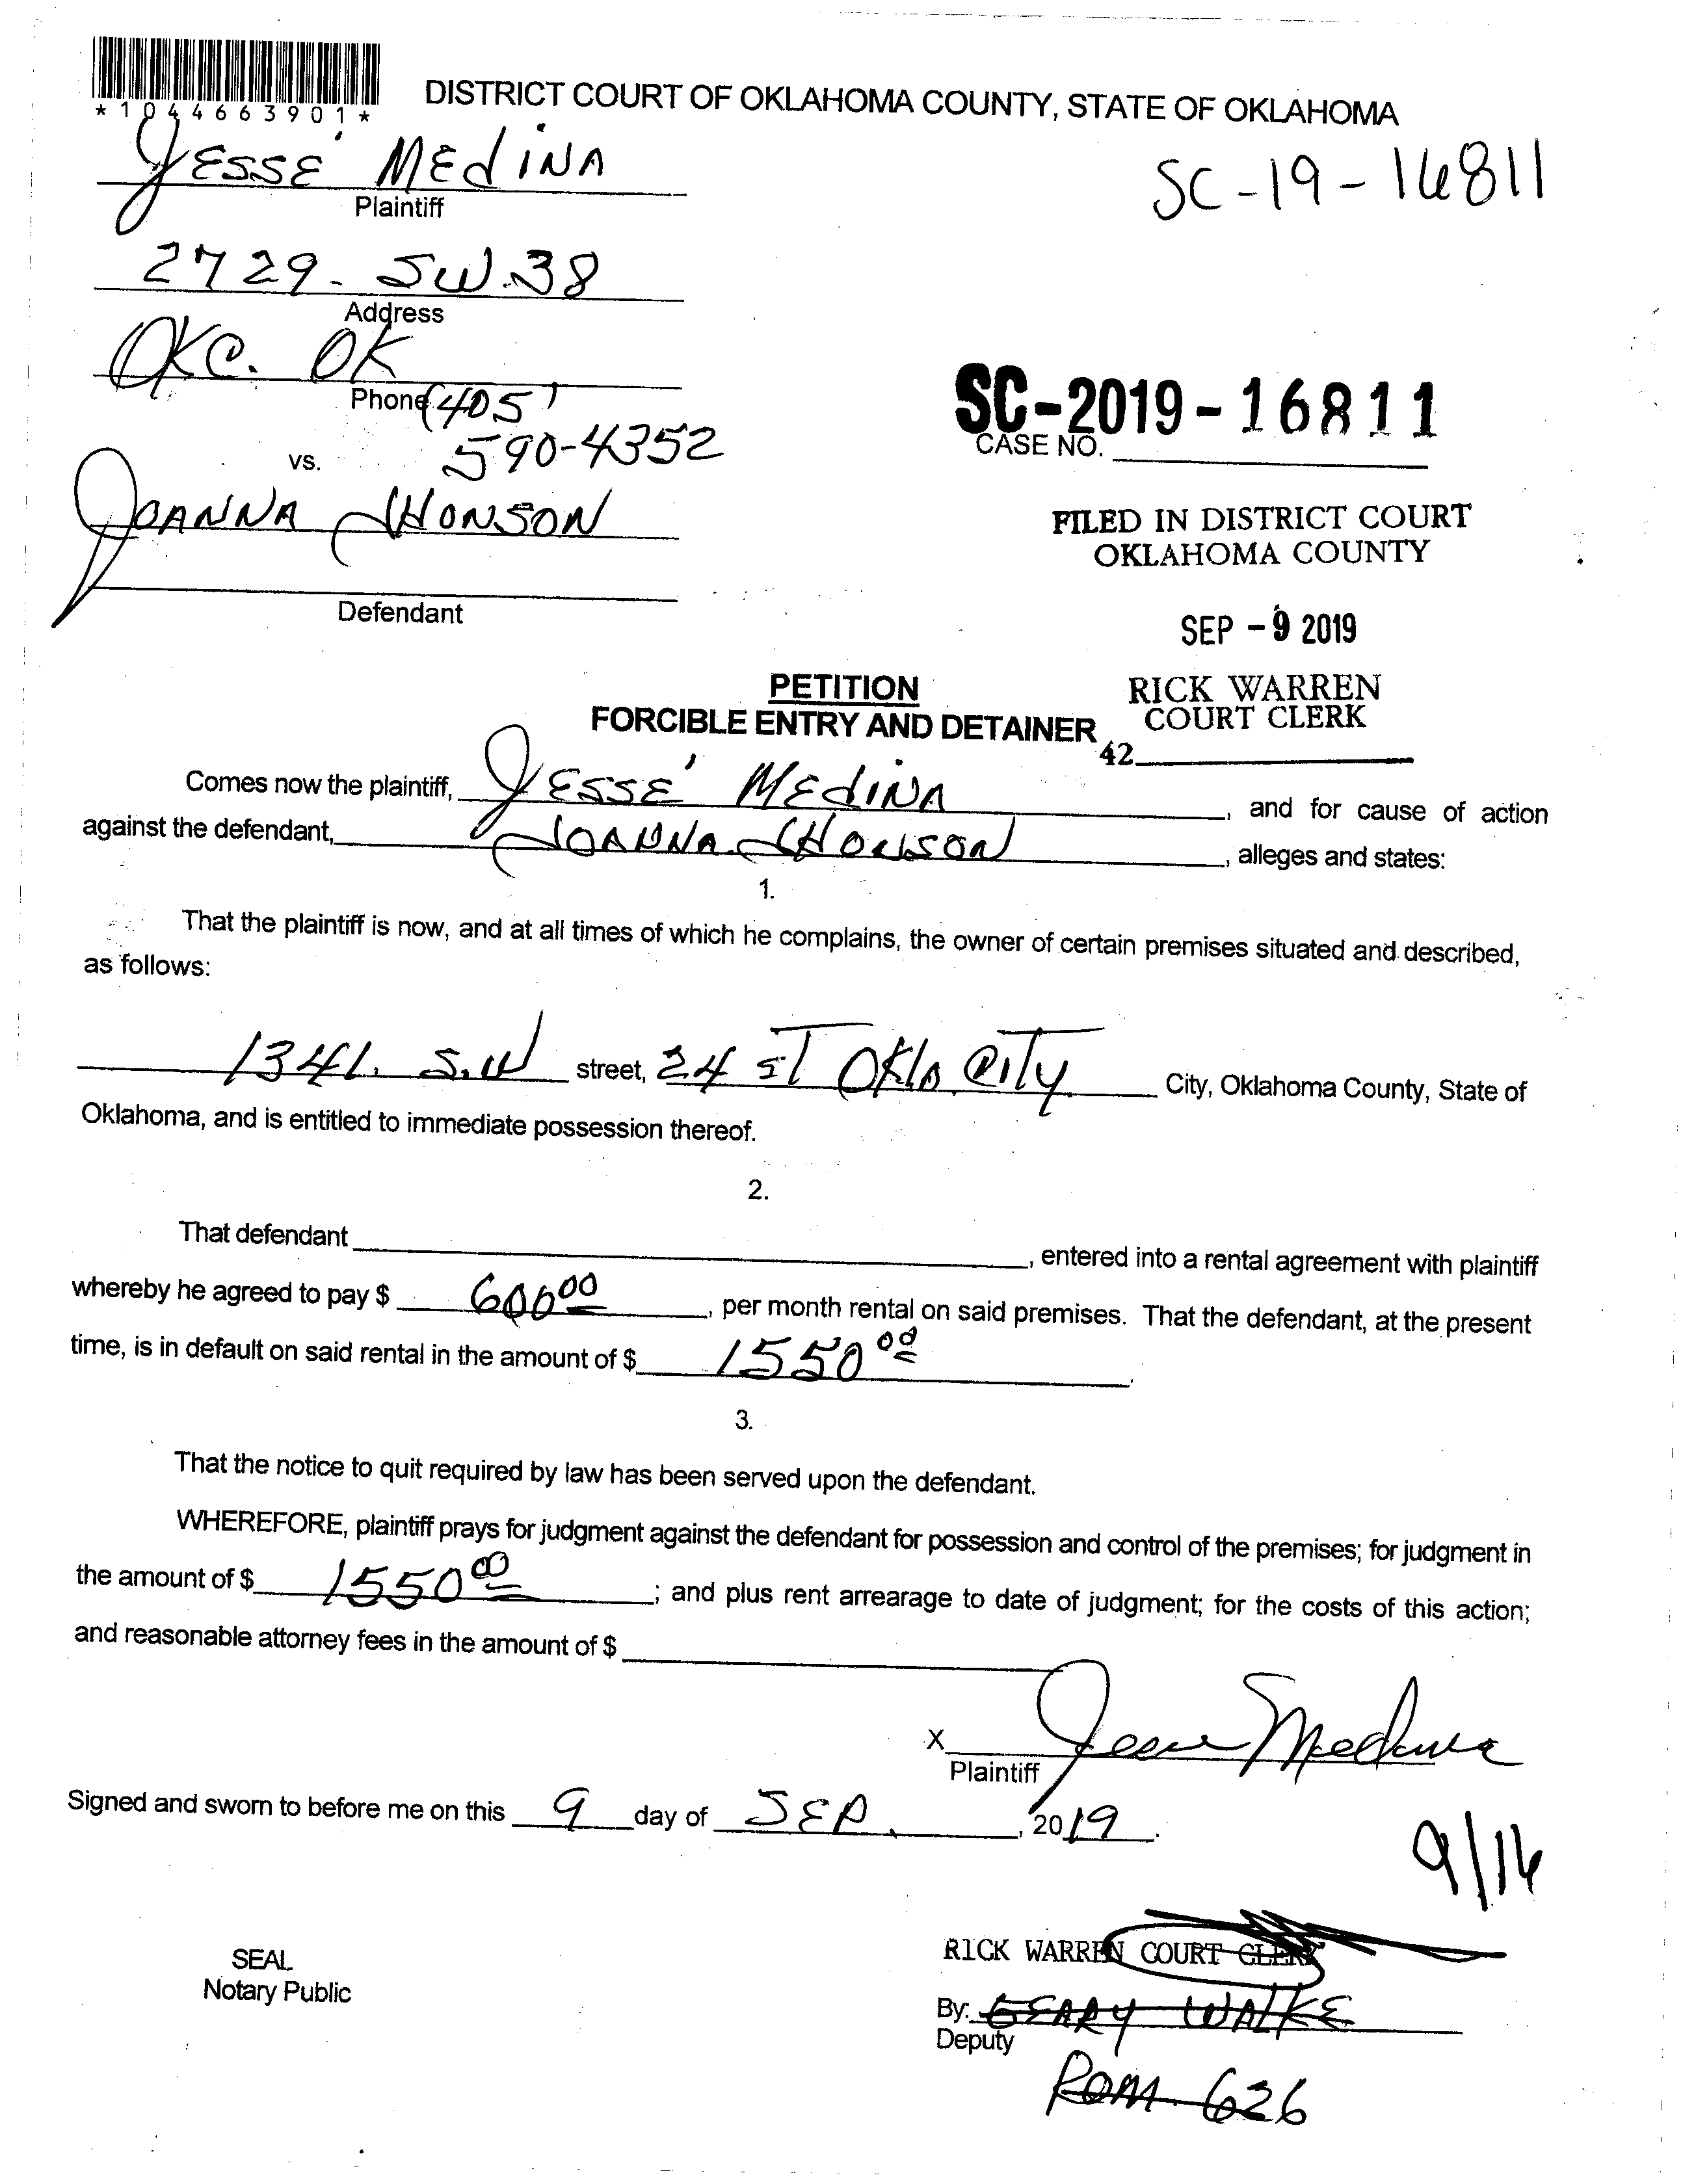 *1044663901*
DISTRICT COURT OF OKLAHOMA COUNTY, STATE OF OKLAHOMA
JESSE' MEdiNA
SC-19-16811
Plaintiff
2729- SW.38
Address
OKC. OK
Phone (405)
590-4352
SC-2019-16811
CASE NO.
vs.
JOANNA JHONSON
FILED IN DISTRICT COURT
OKLAHOMA COUNTY
Defendant
SEP - 9 2019
PETITION
FORCIBLE ENTRY AND DETAINER
RICK WARREN
COURT CLERK
42
Comes now the plaintiff, JESSE' MEdiNA, and for cause of action
against the defendant, JOANNA JHONSON, alleges and states:
1.
That the plaintiff is now, and at all times of which he complains, the owner of certain premises situated and described,
as follows:
1341. S.W street, 24 ST Okla City City, Oklahoma County, State of
Oklahoma, and is entitled to immediate possession thereof.
2.
That defendant , entered into a rental agreement with plaintiff
whereby he agreed to pay $ 600 00, per month rental on said premises. That the defendant, at the present
time, is in default on said rental in the amount of $ 1550 00.
3.
That the notice to quit required by law has been served upon the defendant.
WHEREFORE, plaintiff prays for judgment against the defendant for possession and control of the premises; for judgment in
the amount of $ 1550 00; and plus rent arrearage to date of judgment; for the costs of this action;
and reasonable attorney fees in the amount of $
X Jesse Medina
Plaintiff
Signed and sworn to before me on this 9 day of SEP., 2019.
9/16
SEAL
Notary Public
RICK WARREN COURT CLERK
By: GEARY WALKE
Deputy
ROM 626